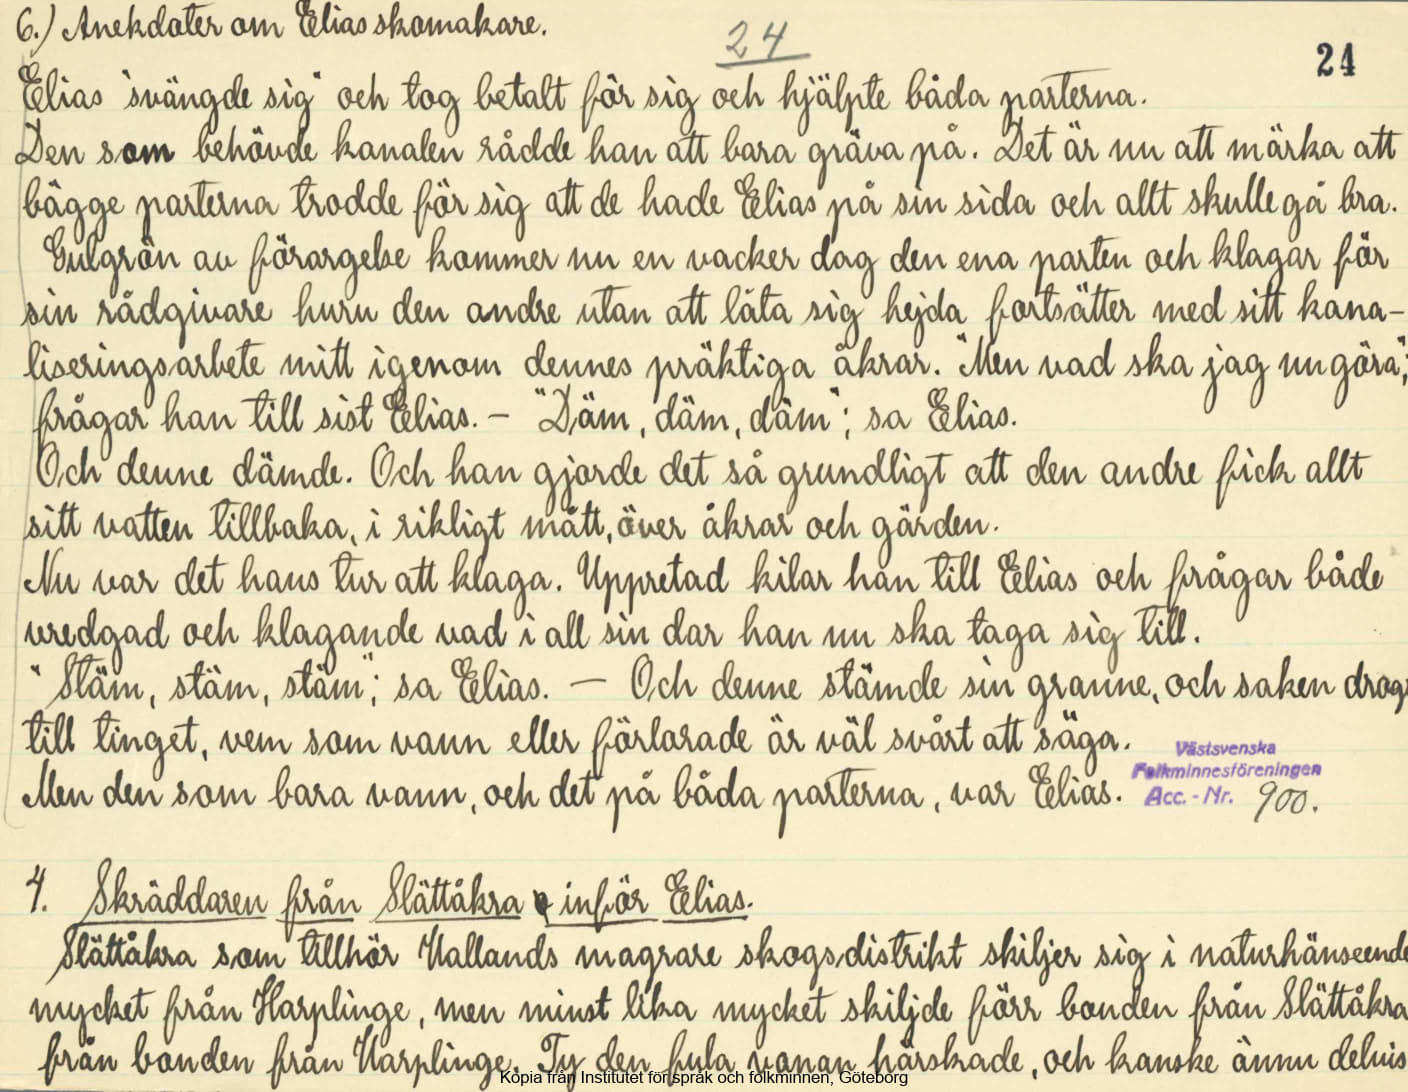 6.) Anekdoter om Elias skomakare.
24
24
Elias "svängde sig" och tog betalt för sig och hjälpte båda parterna.
Den som behövde kanalen rådde han att bara gräva på. Det är nu att märka att
bägge parterna trodde för sig att de hade Elias på sin sida och allt skulle gå bra.
Gulgrön av förargelse kommer nu en vacker dag den ena parten och klagar för
sin rådgivare huru den andre utan att låta sig hejda fortsätter med sitt kana-
liseringsarbete mitt igenom dennes präktiga åkrar. "Men vad ska jag nu göra";
frågar han till sist Elias. - "Däm, däm, däm"; sa Elias.
Och denne dämde. Och han gjorde det så grundligt att den andre fick allt
sitt vatten tillbaka, i rikligt mått, över åkrar och gärden.
Nu var det hans tur att klaga. Uppretad kilar han till Elias och frågar både
vredgad och klagande vad i all sin dar han nu ska taga sig till.
"Stäm, stäm, stäm"; sa Elias. — Och denne stämde sin granne, och saken drogs
till tinget, vem som vann eller förlorade är väl svårt att säga.
Men den som bara vann, och det på båda parterna, var Elias.
Västsvenska
Folkminnesföreningen
Acc. - Nr. 900.
4. Skräddaren från Slättåkra inför Elias.
Slättåkra som tillhör Hallands magrare skogsdistrikt skiljer sig i naturhänseende
mycket från Harplinge, men minst lika mycket skiljde förr bonden från Slättåkra
från bonden från Harplinge. Ty den fula vanan härskade, och kanske ännu delvis
Kopia från Institutet för språk och folkminnen, Göteborg